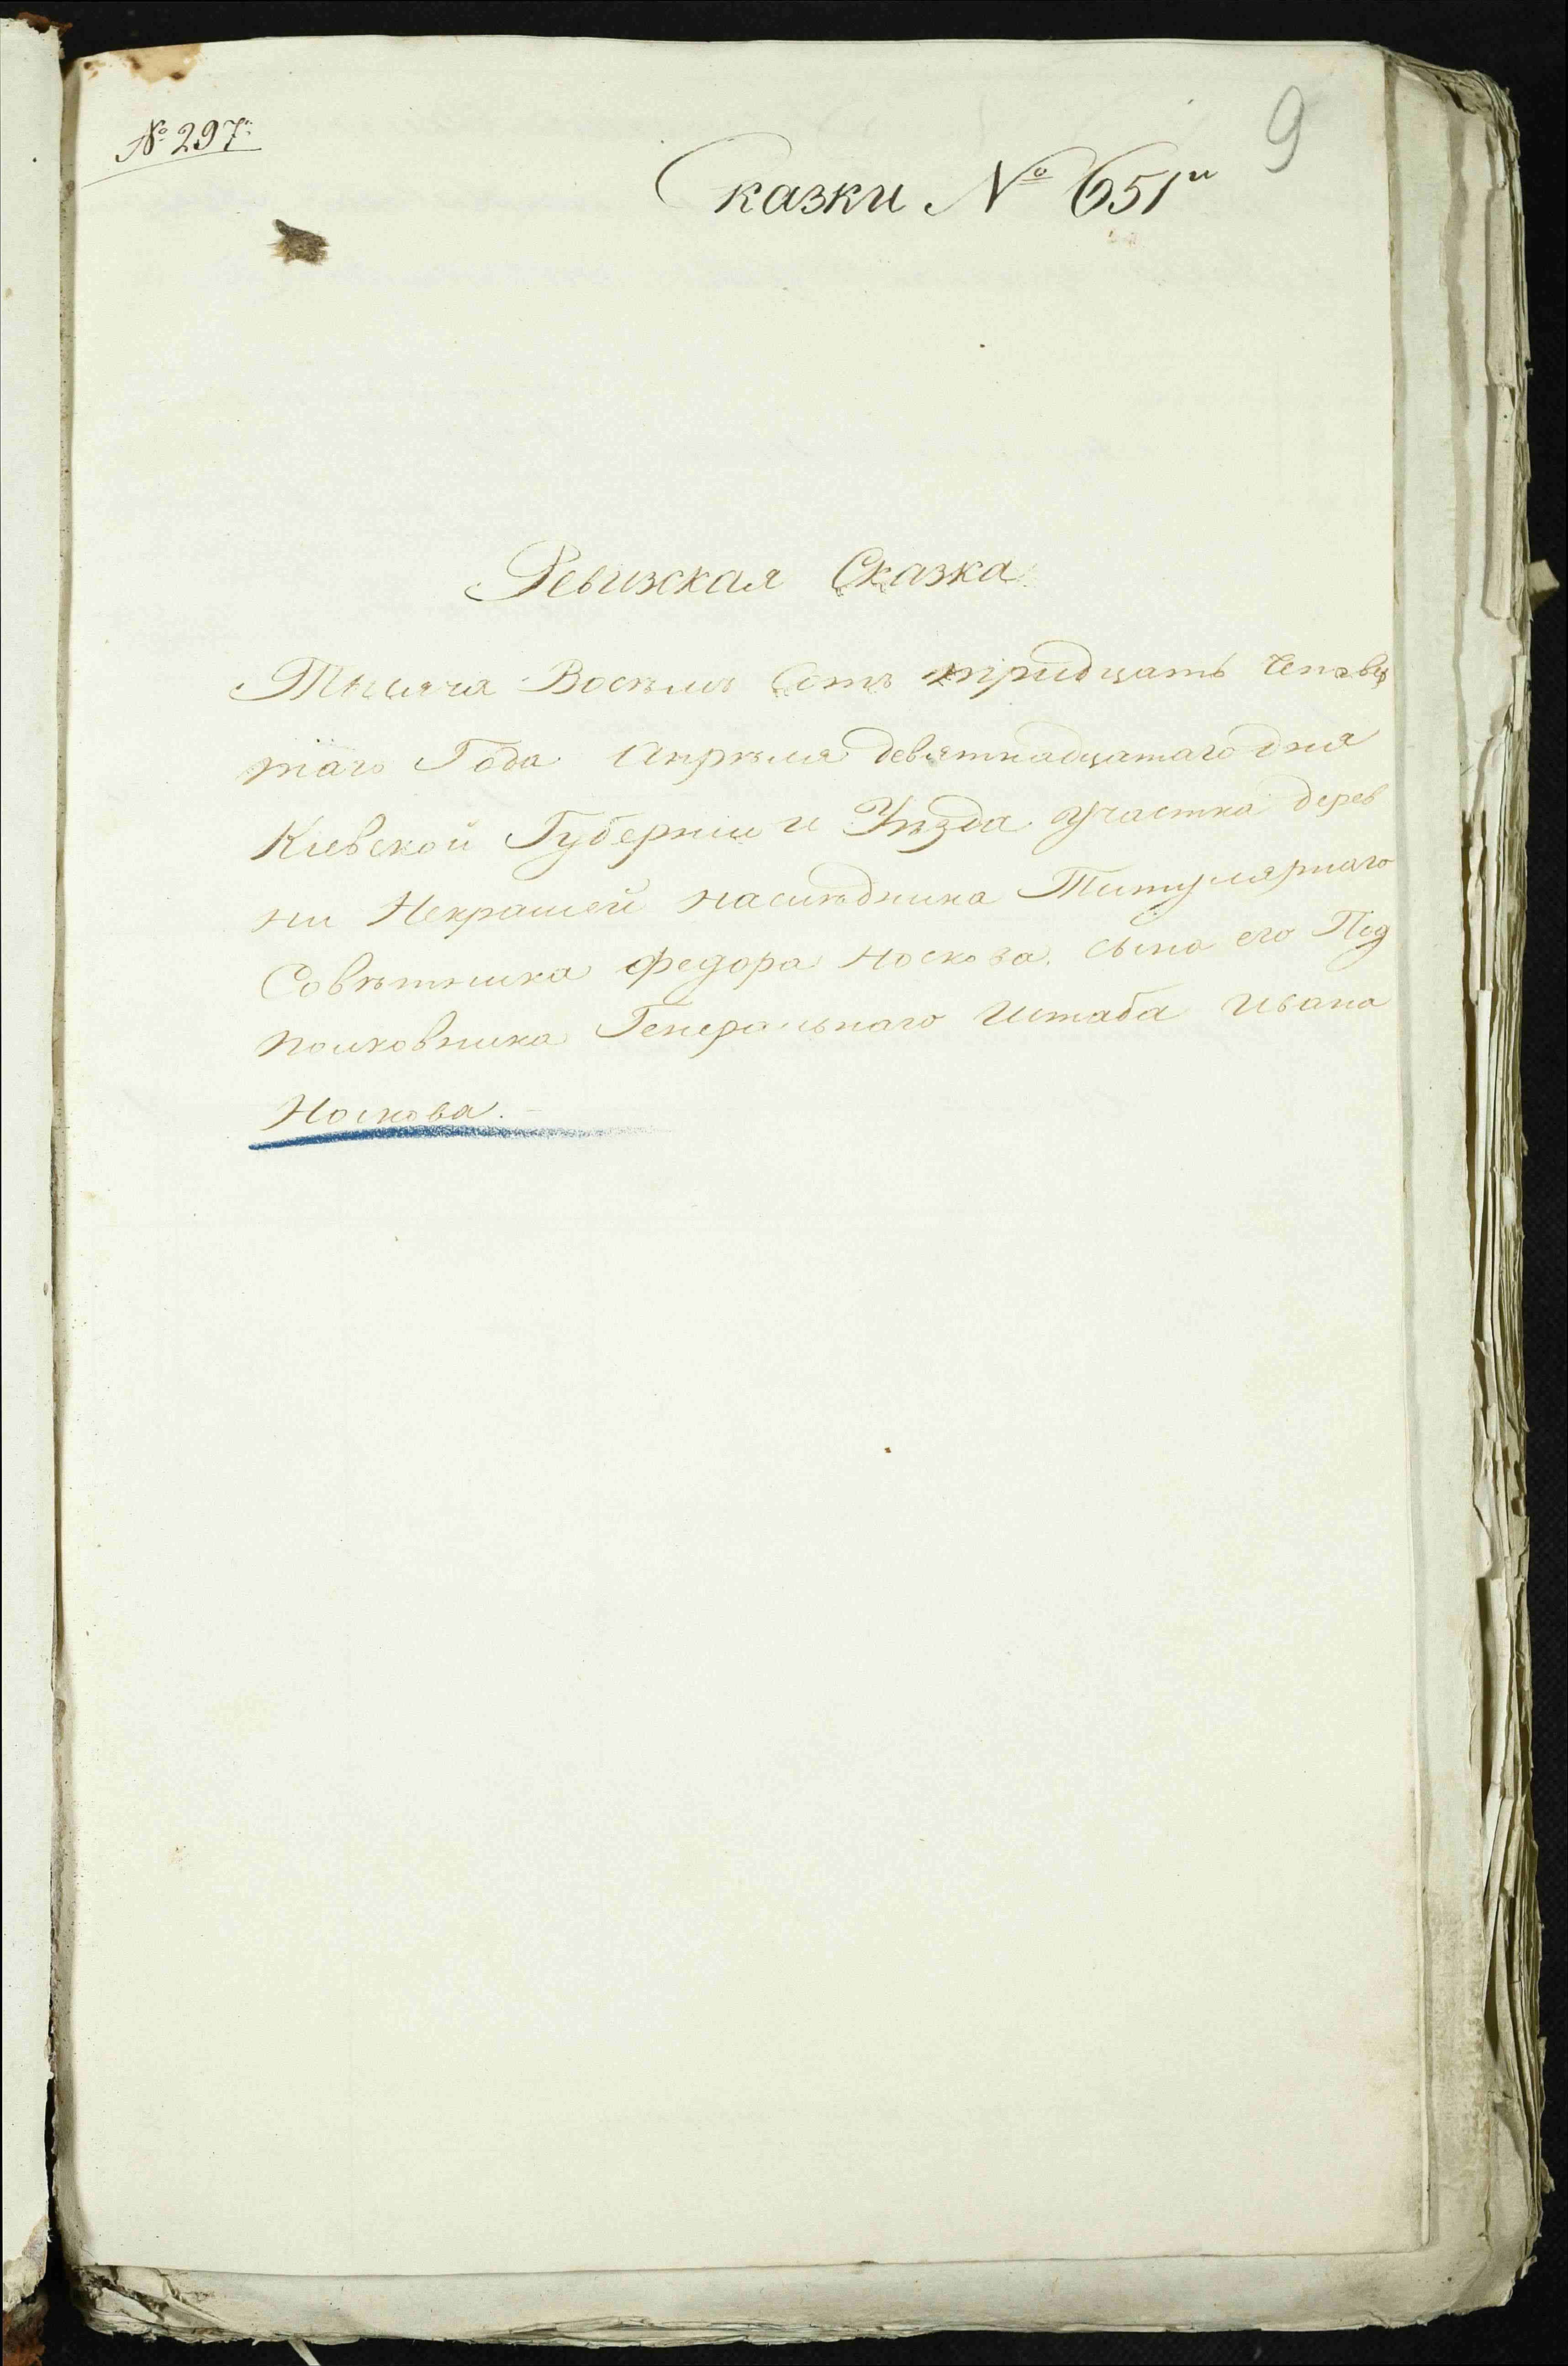 № 297й
9
Сказки № 651й
Ревизская Сказка
Тысяча Восѣмъ Сотъ тридцать Четвер
таго Года Апрѣля девятнадцатаго дня
Кіевской Губерніи и Уѣзда участка дерев
ни Некрашей наслѣдника Титулярнаго
Совѣтника Федора Носкова. сына его Под
полковника Генеральнаго Штаба Ивана
Носкова. —